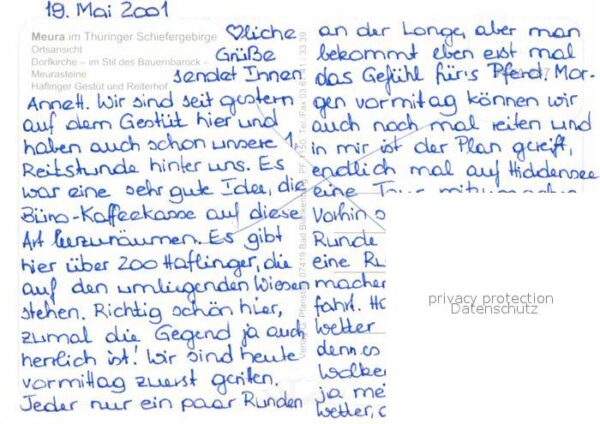 19. Mai 2001
♡liche
Grüße
sendet Ihnen
Annett. Wir sind seit gestern
auf dem Gestüt hier und
haben auch schon unsere 1.
Reitstunde hinter uns. Es
war eine sehr gute Idee, die
Büro-Kaffeekasse auf diese
Art leerzuräumen. Es gibt
hier über 200 Haflinger, die
auf den umliegenden Wiesen
stehen. Richtig schön hier,
zumal die Gegend ja auch
herrlich ist! Wir sind heute
vormittag zuerst geritten.
Jeder nur ein paar Runden
an der Longe, aber man
bekommt eben erst mal
das Gefühl für's Pferd. Mor-
gen vormittag können wir
auch noch mal reiten und
in mir ist der Plan gereift,
endlich mal auf Hiddensee
eine Tour mitzumachen
Vorhin
Runde
eine
machen
fahrt.
Wetter
denn es
Wolken
ja
Wetter,
Meura im Thüringer Schiefergebirge
Ortsansicht
Dorfkirche – im Stil des Bauernbarock –
Meurasteine
Haflinger Gestüt und Reiterhof
07419 Bad Blankenburg, PF 1150, Tel./Fax
privacy protection
Datenschutz